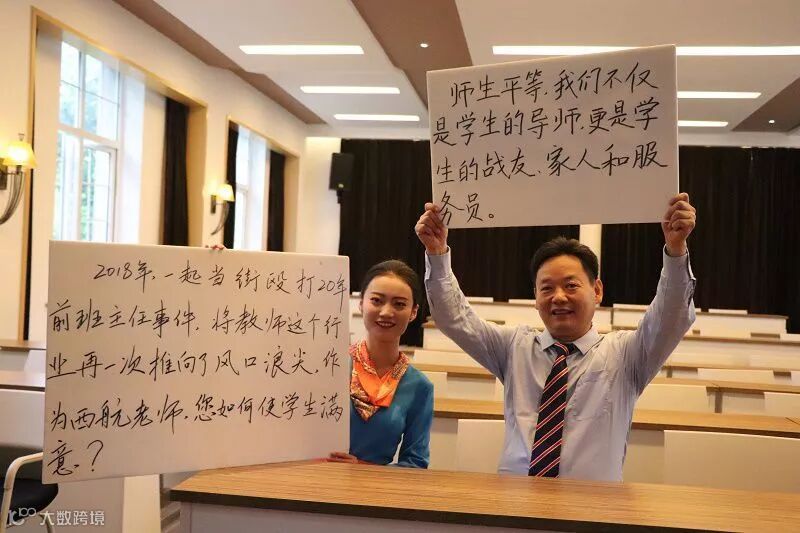 2018年，一起当街殴打20年
前班主任事件，将教师这个行
业再一次推向了风口浪尖，作
为西航老师，您如何使学生满
意？
师生平等，我们不仅
是学生的导师，更是学
生的战友、家人和服
务员。
大数跨境